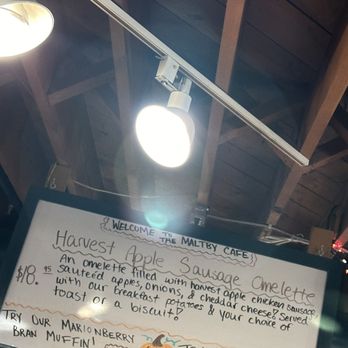 WELCOME TO THE MALTBY CAFE!
Harvest Apple Sausage Omelette
An omelette filled with harvest apple chicken sausage
sautéed apples, onions, & cheddar cheese! Served
$18.95 with our breakfast potatoes & your choice of
toast or a biscuit!
TRY OUR MARIONBERRY
BRAN MUFFIN!